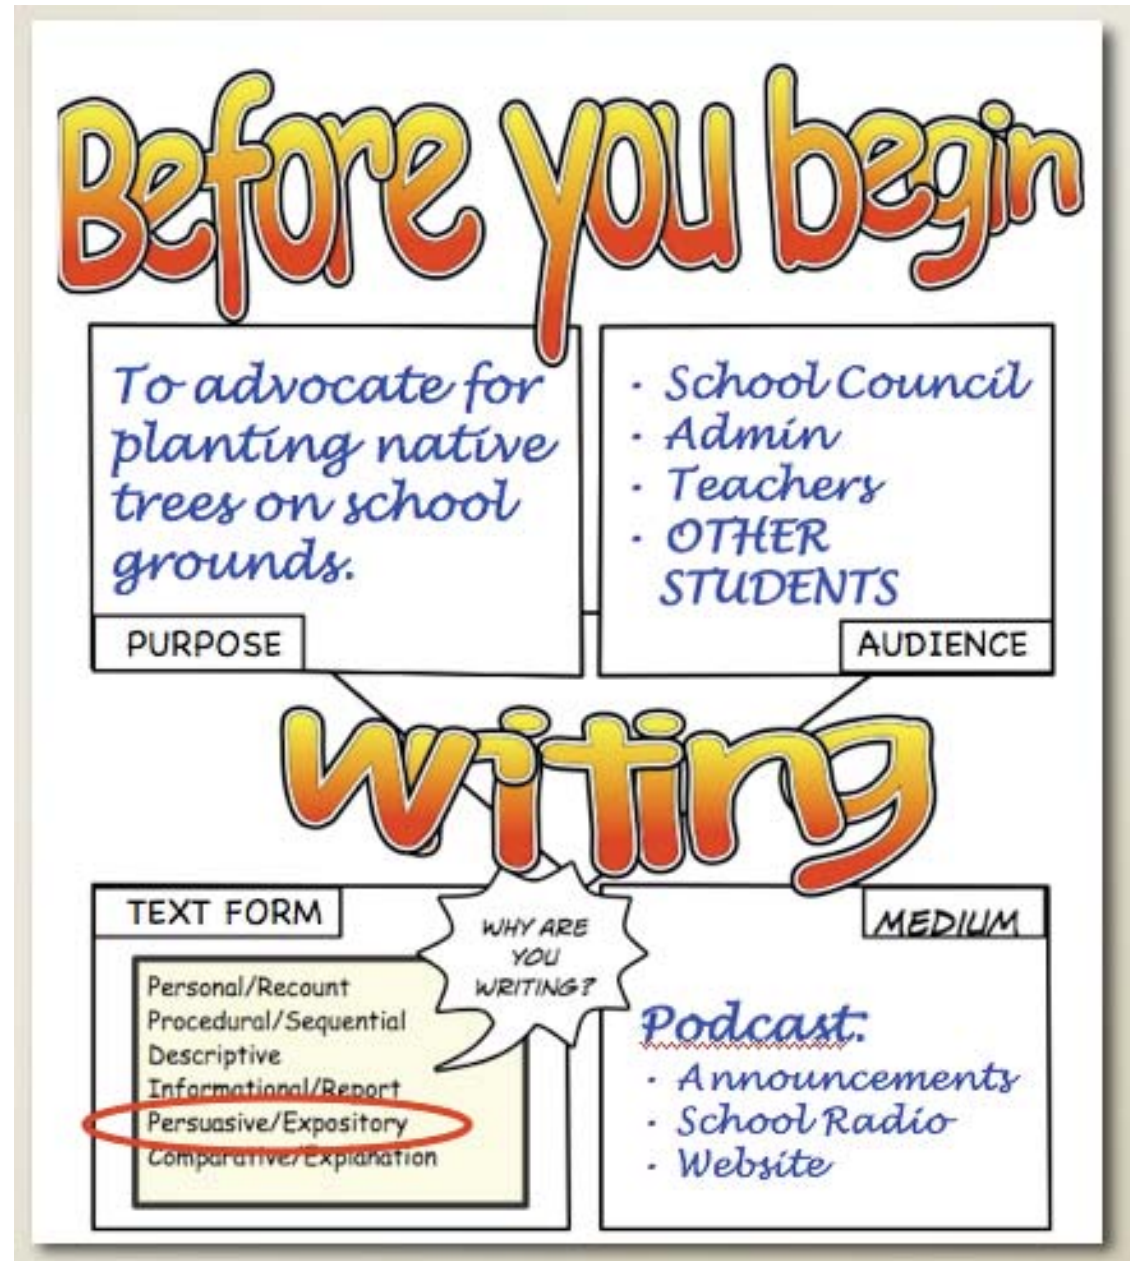 Before you begin
To advocate for
planting native
trees on school
grounds.
PURPOSE
· School Council
· Admin
· Teachers
· OTHER
STUDENTS
AUDIENCE
writing
TEXT FORM
Personal/Recount
Procedural/Sequential
Descriptive
Informational/Report
Persuasive/Expository
Comparative/Explanation
WHY ARE
YOU
WRITING?
MEDIUM
Podcast:
· Announcements
· School Radio
· Website